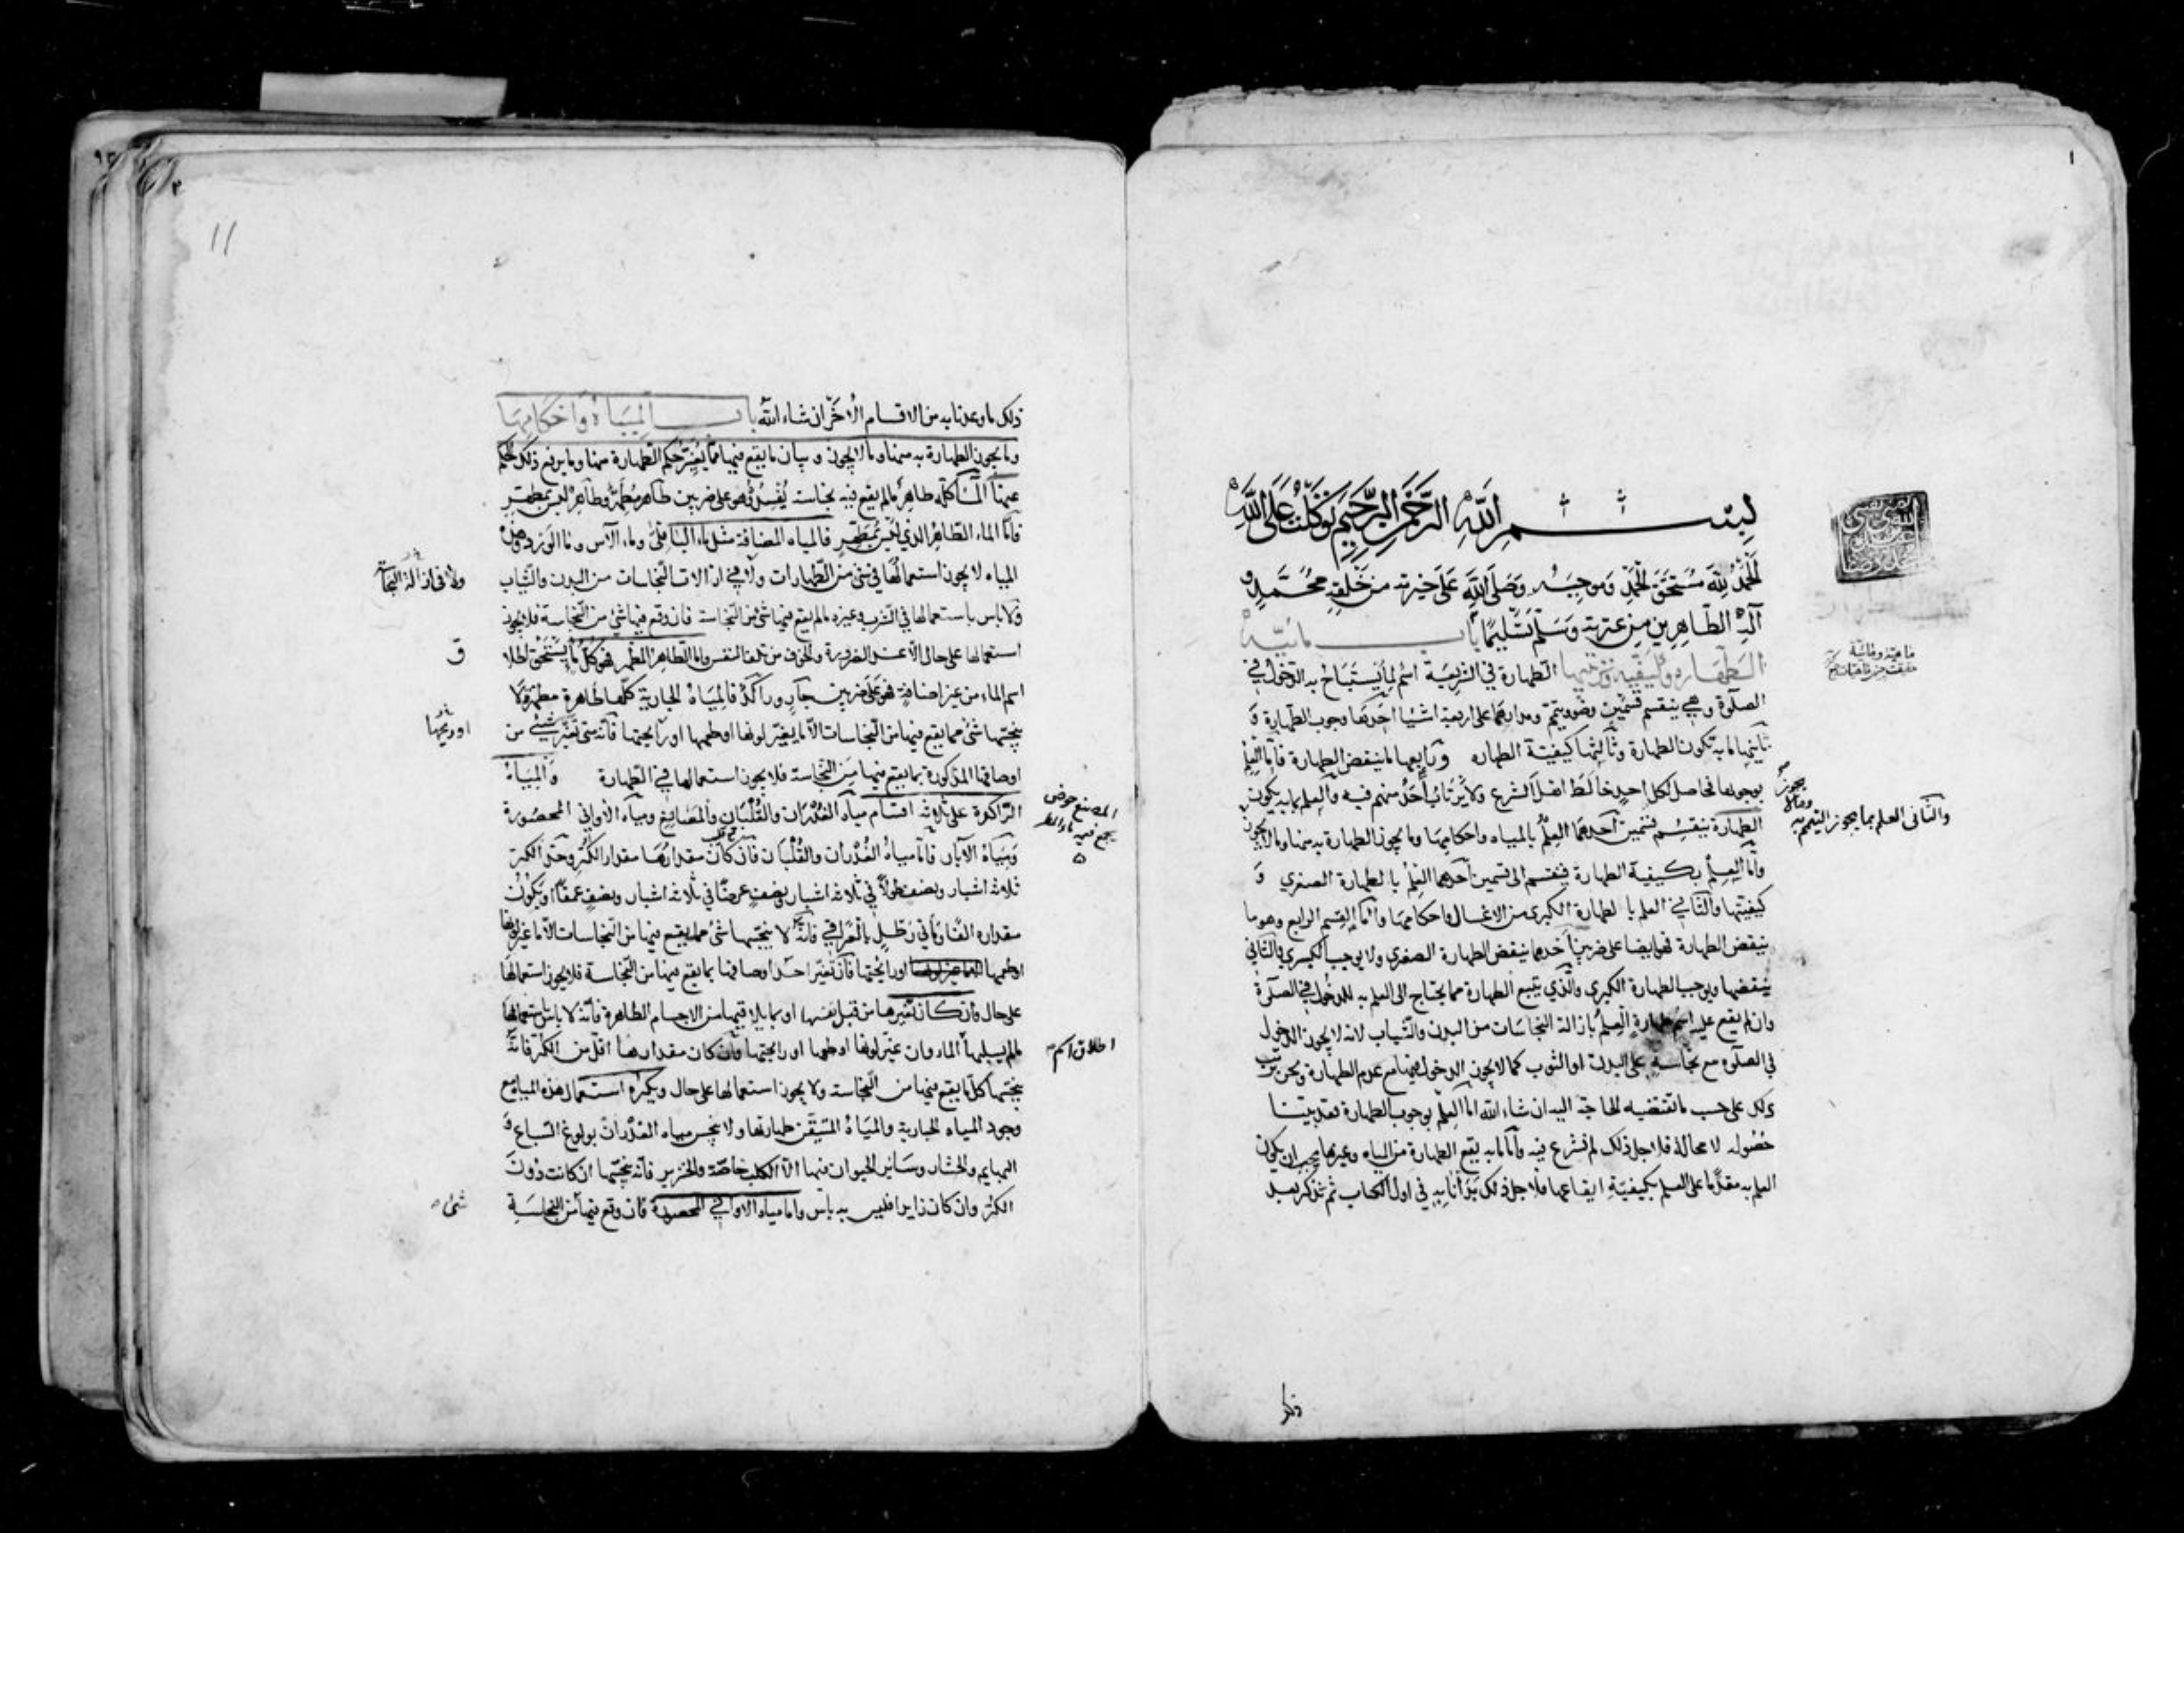 بسم الله الرحمن الرحيم توكلت على الله
الحمد لله مستحق الحمد وموجبه وصلى الله على خيرته من خلقه محمد و
آله الطاهرين من عترته وسلم تسليما باب مائية
الطهارة وكيفية ترتيبها الطهارة في الشريعة اسم لما يستباح به الدخول في
الصلوة وهي ينقسم قسمين وضوء وتيمم ومدارهما على اربعة اشياء احدها وجوب الطهارة و
ثانيها ما به تكون الطهارة وثالثها كيفية الطهارة ورابعها ما ينقض الطهارة فاما العلم
بوجوبها فحاصل لكل احد خالط اهل الشرع ولا يرتاب أحد منهم فيه والعلم بما به يكون
الطهارة ينقسم قسمين أحدهما العلم بالمياه واحكامها وما يجوز الطهارة به منها وما لا يجوز
والثاني العلم بما يجوز التيمم به
وأما العلم بكيفية الطهارة فينقسم الى قسمين أحدهما العلم بالطهارة الصغرى و
كيفيتها والثاني العلم بالطهارة الكبرى من الاغسال واحكامها وأما القسم الرابع وهو ما
ينقض الطهارة فهو ايضا على ضربين أحدهما ينقض الطهارة الصغرى ولا يوجب الكبرى والثاني
ينقضها ويوجب الطهارة الكبرى والذي يتبع الطهارة مما يحتاج الى العلم به للدخول في الصلوة
وان لم يقع عليه اسم طهارة العلم بازالة النجاسات من البدن والثياب لانه لا يجوز الدخول
في الصلوة مع نجاسة على البدن او الثوب كما لا يجوز الدخول فيها مع عدم الطهارة ونحن نرتب
ذلك على حسب ما تقتضيه الحاجة اليه ان شاء الله اما العلم بوجوب الطهارة فقد بينا
حصوله لا محالة فلاجل ذلك لم نشرع فيه وأما ما به يقع الطهارة من المياه وغيرها يجب ان يكون
العلم به مقدما على العلم بكيفية ايقاعها فلاجل ذلك بدأنا به في اول الكتاب ثم نذكر بعد
ذلك ما وعدنا به من الاقسام الأخر ان شاء الله باب المياه واحكامها
وما يجوز الطهارة به منها وما لا يجوز وبيان ما يقع فيها مما يغير حكم الطهارة منها وما يرفع ذلك الحكم
عنها الماء كله طاهر ما لم يقع فيه نجاسة يفسده وهو على ضربين طاهر مطهر وطاهر ليس بمطهر
فاما الماء الطاهر الذي ليس بمطهر فالمياه المضافة مثل ماء الباقلى وماء الآس وماء الورد وهذه
المياه لا يجوز استعمالها في شئ من الطهارات ولا في ازالات النجاسات من البدن والثياب
ولا في ازالة النجاسة
ولا بأس باستعمالها في الشرب وغيره ما لم يقع فيها شئ من النجاسة فان وقع فيها شئ من النجاسة فلا يجوز
استعمالها على حال الا عند الضرورة والخوف من تلف النفس واما الطاهر المطهر فهو كل ما يستحق اطلاق
اسم الماء من غير اضافة فهو على ضربين جار وراكد فالمياه الجارية كلها طاهرة مطهرة لا
ينجسها شئ مما يقع فيها من النجاسات الا ما يغير لونها او طعمها او رائحتها فانه متى تغير شيئ من
او ريحها
اوصافها المذكورة بما يقع فيها من النجاسة فلا يجوز استعمالها في الطهارة والمياه
الراكدة على ثلاثة اقسام مياه الغدران والقلبان والمصانع ومياه الأواني المحصورة
المصنع حوض
يجمع فيه ماء المطر
ومياه الآبار فاما مياه الغدران والقلبان فان كان مقدارها مقدار الكر وحد الكر
ثلاثة اشبار ونصف طولا في ثلاثة اشبار ونصف عرضا في ثلاثة اشبار ونصف عمقا او يكون
مقداره الفا ومأتي رطل بالعراقي فانه لا ينجسها شئ مما يقع فيها من النجاسات الا ما غير لونها
او طعمها او رائحتها فان تغير احد اوصافها بما يقع فيها من النجاسة فلا يجوز استعمالها
على حال فان كان تغيرها من قبل نفسها او بما يلاقيها من الاجسام الطاهرة فانه لا بأس باستعمالها
ما لم يسلبها الماء وان غير لونها او طعمها او رائحتها وان كان مقدارها اقل من الكر فانه
اطلاق اسم
ينجسها كل ما يقع فيها من النجاسة ولا يجوز استعمالها على حال ويكره استعمال هذه المياه مع
وجود المياه الجارية والمياه المتيقن طهارتها ولا ينجس مياه الغدران بولوغ السباع و
البهايم والحشار وسائر الحيوان فيها الا الكلب خاصة والخنزير فانه ينجسها ان كانت دون
الكر وان كان زايدا فليس به بأس واما مياه الاواني المحصورة فان وقع فيها من النجاسة
شئ
ذكر